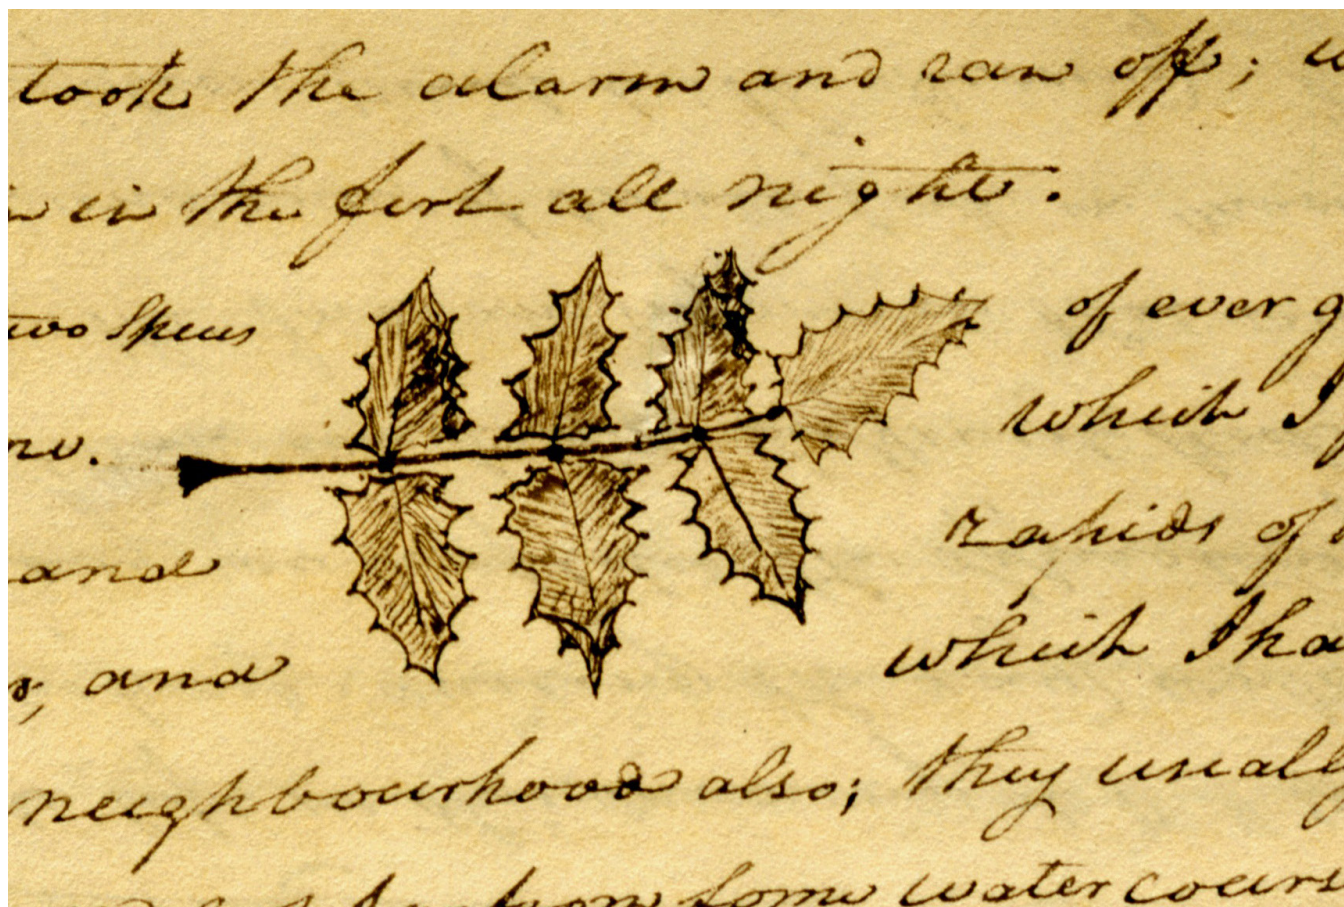 took the alarm and ran off; w
in the fort all night.
two Specis of ever g
which I
and rapids of
and which I ha
neighbourhood also; they usually
from some water cours